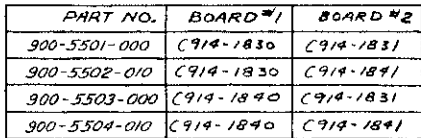 PART NO. BOARD #1 BOARD #2
900-5501-000 C914-1830 C914-1831
900-5502-010 C914-1830 C914-1841
900-5503-000 C914-1840 C914-1831
900-5504-010 C914-1840 C914-1841